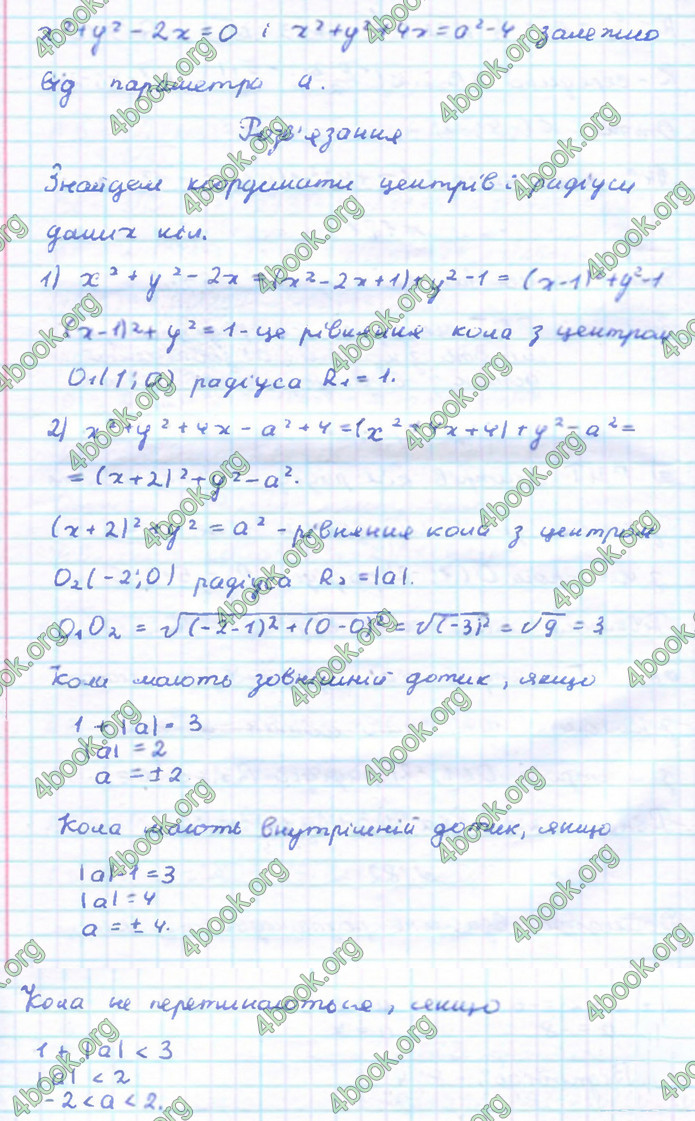 x² + y² - 2x = 0 і x² + y² + 4x = a² - 4 залежно
від параметра a.
Розв'язання
Знайдем координати центрів і радіуси
даних кіл.
1) x² + y² - 2x = (x² - 2x + 1) + y² - 1 = (x-1)² + y² - 1
(x-1)² + y² = 1 - це рівняння кола з центром
O₁(1; 0) радіуса R₁ = 1.
2) x² + y² + 4x - a² + 4 = (x² + 4x + 4) + y² - a² =
= (x+2)² + y² - a².
(x+2)² + y² = a² - рівняння кола з центром
O₂(-2; 0) радіуса R₂ = |a|.
O₁O₂ = √(-2-1)² + (0-0)² = √(-3)² = √9 = 3
Кола мають зовнішній дотик, якщо
1 + |a| = 3
|a| = 2
a = ±2
Кола мають внутрішній дотик, якщо
|a| - 1 = 3
|a| = 4
a = ±4.
Кола не перетинаються, якщо
1 + |a| < 3
|a| < 2
-2 < a < 2.
4book.org